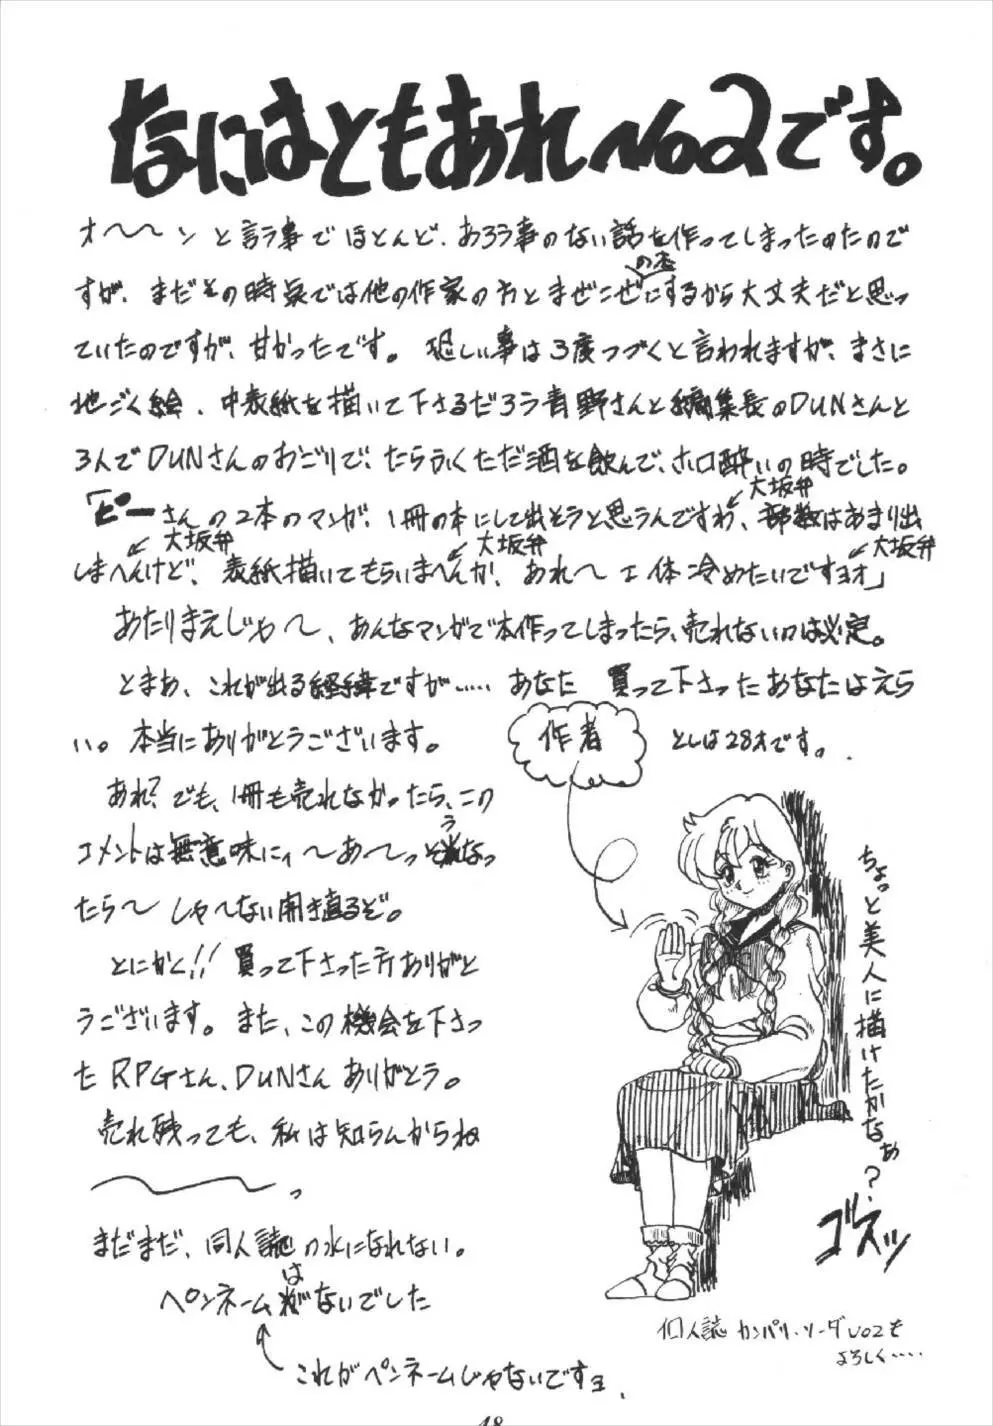 なにはともあれNo2です。
オ〜〜ンと言う事でほとんど、あろう事のない話を作ってしまったのたので
すが、まだその時点では他の作家の方とまぜこぜにするから大丈夫だと思っ
の本
ていたのですが、甘かったです。恐しい事は3度つづくと言われますが、まさに
地ごく絵、中表紙を描いて下さるだろう青野さんと編集長のDUNさんと
3人でDUNさんのおごりで、たらふくただ酒を飲んで、ホロ酔いの時でした。
大坂弁
「ピーさんの2本のマンガ、1冊の本にして出そうと思うんですわ、部数はあまり出
大坂弁
大坂弁
大坂弁
しまへんけど、表紙描いてもらいまへんか、あれ〜エ体冷めたいですヨオ」
あたりまえじゃ〜、あんなマンガで本作ってしまったら、売れないのは必定。
とまあ、これが出る経緯ですが……あなた 買って下さったあなたはえら
い。本当にありがとうございます。
あれ?でも、1冊も売れなかったら、この
コメントは無意味にィ〜あ〜っそうなっ
たら〜しゃ〜ない開き直るぞ。
とにかく!!買って下さった方ありがと
うございます。また、この機会を下さっ
たRPGさん、DUNさんありがとう。
売れ残っても、私は知らんからね
〜〜っ
まだまだ、同人誌の水になれない。
ペンネームはないでした
これがペンネームじゃないですヨ、
作者
としは28才です。
ちょっと美人に描けたかなぁ?
ゴルスッ
同人誌 カンパリ・ソーダVO2も
よろしく……
18